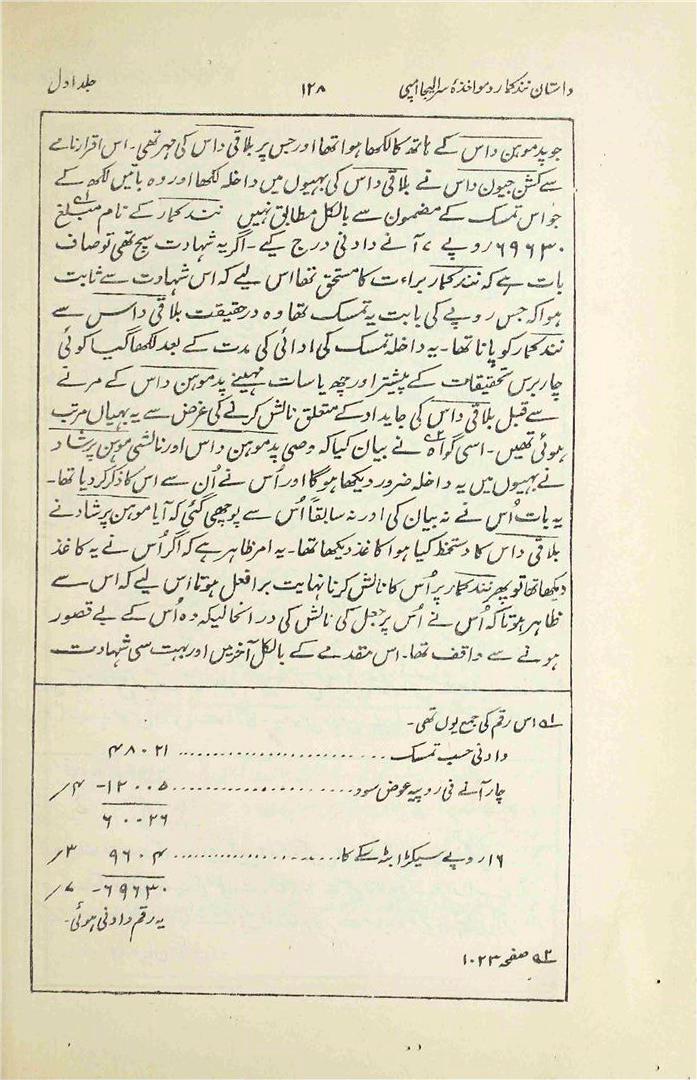 داستان نندکمار و مواخذۂ سرالیجاامپی ۱۲۸ جلد اول
جو پدموہن داس کے ہاتھ کا لکھا ہوا تھا اور جس پر بلاقی داس کی مہر تھی۔ اس اقرارنامے
سے کشن جیون داس نے بلاقی داس کی بہیوں میں داخلہ لکھا اور وہ باتیں لکھ کے
جو اس تمسک کے مضمون سے بالکل مطابق نہیں نندکمار کے نام مبلغ
۶۹۶۳۰ روپے ۷ آنے دادنی درج کیے۔ اگر یہ شہادت سچ تھی تو صاف
بات ہے کہ نندکمار براءت کا مستحق تھا اس لیے کہ اس شہادت سے ثابت
ہوا کہ جس روپے کی بابت یہ تمسک تھا وہ درحقیقت بلاقی داس سے
نندکمار کو پانا تھا۔ یہ داخلہ تمسک کی ادائی کی مدت کے بعد لکھا گیا کوئی
چار برس تحقیقات کے پیشتر اور چھ یا سات مہینے پدموہن داس کے مرنے
سے قبل بلاقی داس کی جایداد کے متعلق نالش کرنے کی غرض سے یہ بہیاں مرتب
ہوئی تھیں۔ اسی گواہ ۲؎ نے بیان کیا کہ وصی پدموہن داس اور نالشی موہن پرشاد
نے بہیوں میں یہ داخلہ ضرور دیکھا ہوگا اور اُس نے اُن سے اس کا ذکر کر دیا تھا۔
یہ بات اُس نے نہ بیان کی اور نہ سابقاً اُس سے پوچھی گئی کہ آیا موہن پرشاد نے
بلاقی داس کا دستخط کیا ہوا کاغذ دیکھا تھا۔ یہ امر ظاہر ہے کہ اگر اُس نے یہ کاغذ
دیکھا تھا تو پھر نندکمار پر اُس کا نالش کرنا نہایت برا فعل ہوتا اس لیے کہ اس سے
ظاہر ہوتا کہ اُس نے اُس پر جعل کی نالش کی در انحالیکہ وہ اُس کے بے قصور
ہونے سے واقف تھا۔ اس مقدمے کے بالکل آخر میں اور بہت سی شہادت
۱؎ اس رقم کی جمع یوں تھی۔
دادنی حسب تمسک ........................ ۴۸۰۲۱
چار آنے فی روپیہ عوض سود ........................ ۱۲۰۰۵- ۴/
۶۰۰۲۶
۱۶ روپے سیکڑا بٹہ سکے کا ........................ ۹۶۰۴ ۳/
۶۹۶۳۰- ۷/
یہ رقم دادنی ہوئی۔
۲؎ صفحہ ۱۰۲۳